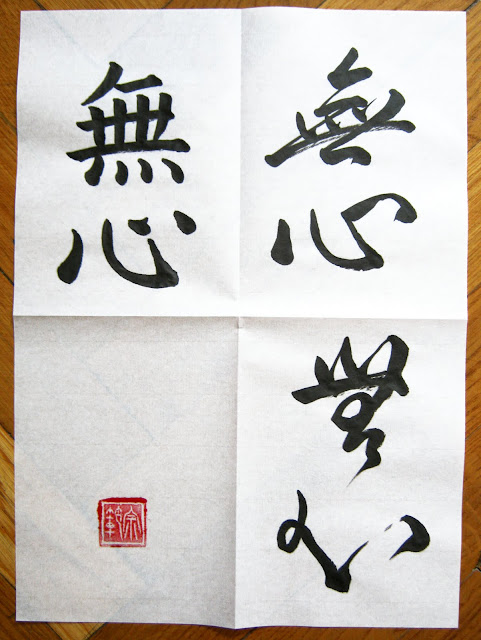 無心
無心
無心